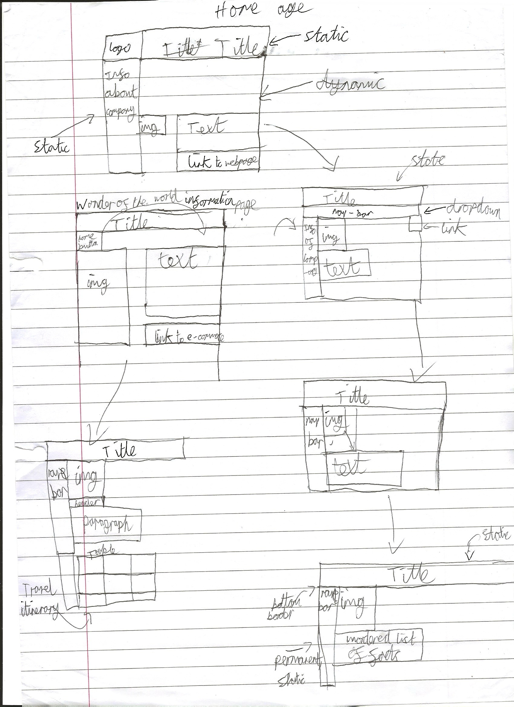 Home page
Logo
Title Title
static
Info
about
company
dynamic
static
img
Text
link to webpage
static
Wonder of the world information page
Title
home
button
img
text
link to e-commerce
Title
nav-bar
dropdown
link
img
text
Title
nav
bar
img
text
Title
nav
bar
img
header
paragraph
Table
Travel
itinerary
static
Title
bottom
nav
bar
img
unordered list
of
permanent
static